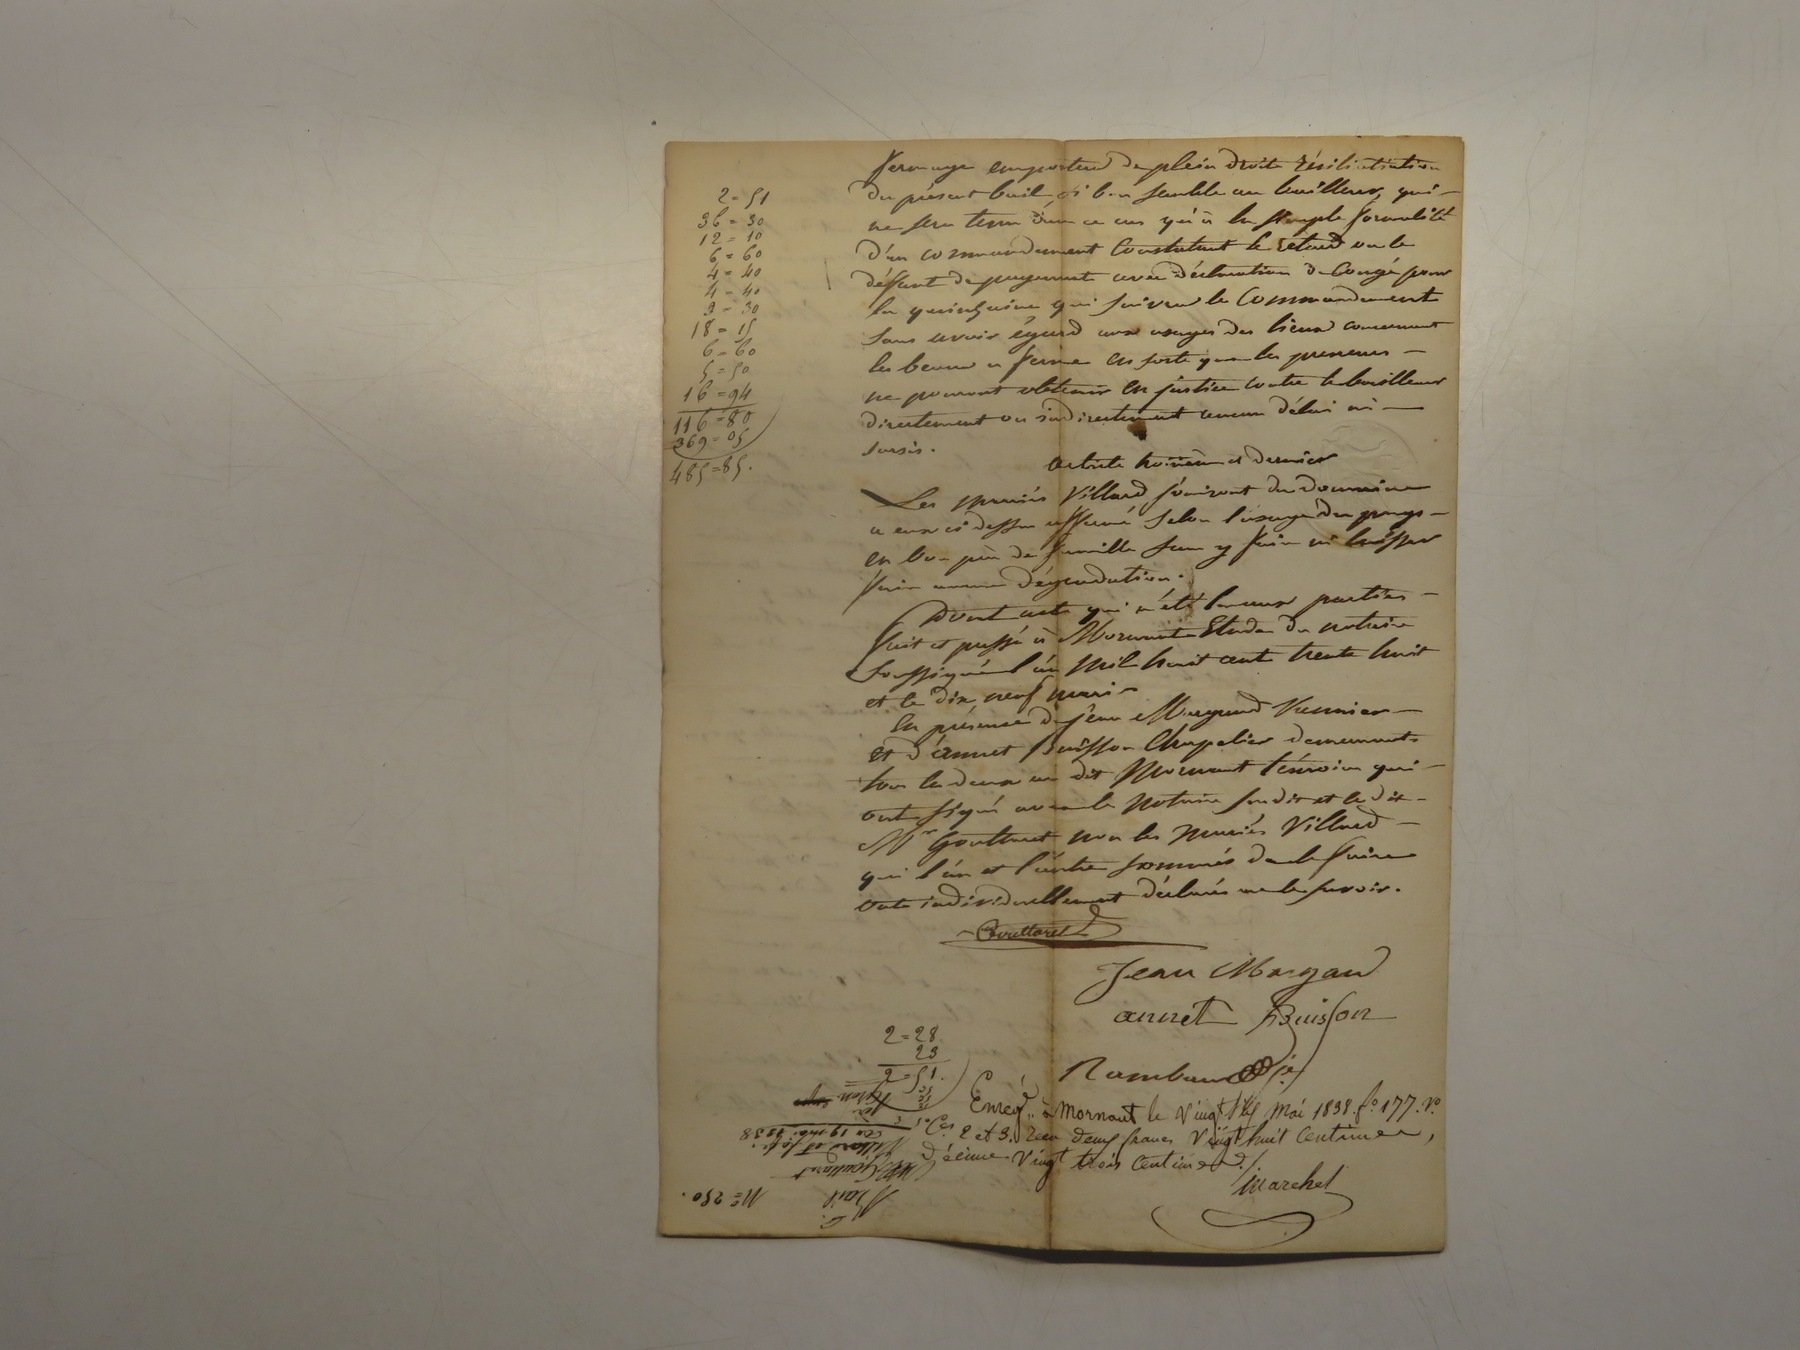 2=51
36=30
12=10
6=60
4=40
4=40
2=30
18=15
6=60
5=50
16=94
116=80
369=05
485=85.
fermage emportera de plein droite résiliatiation
du présent bail, si bon semble au bailleur, qui
ne sera tenu ce cas qu'à la simple formalité
d'un commandement constatant le retard ou le
déffaut de payement avec déclaration de Congé pour
la quinzaine qui suivra le Commandement
sans avoir égard aux usages des lieux concernant
les beaux a ferme en sorte que les preneurs
ne pourront obtenir en justice contre le bailleur
directement ou indirectement aucun délai ni
sursis.
article troisième et dernier
Les mariés Villard jouiront du domaine
a eux ci dessu affermé selon l'usage du pays
en bon père de famille sans y faire ni laisser
faire aucune dégradation.
Dont acte qui a été lu aux parties
fait et passé à Mornant Etude du notaire
soussigné l'an mil huit cent trente huit
et le dix neuf mai
En présence de Jean Margand
et d'annet Buisson Chapelier demeurants
tous les deux au dit Mornant témoins qui
ont signé avec le notaire susdit et le dit
Mr Gouttaret non les mariés Villard
qui l'un et l'autre sommés de le faire
ont individuellement déclarés ne le savoir.
Gouttaret
Jean Margand
annet Buisson
Rambaud
2=28
23
2=51.
Enregé à Mornant le vingt Mai 1838. fo. 177. Vo
Ces 2 et 3. Reçu deux francs vingt huit centimes,
décime vingt trois centimes.
Marchel
Villard et
du 19 mai 1838
Bail
No=250.